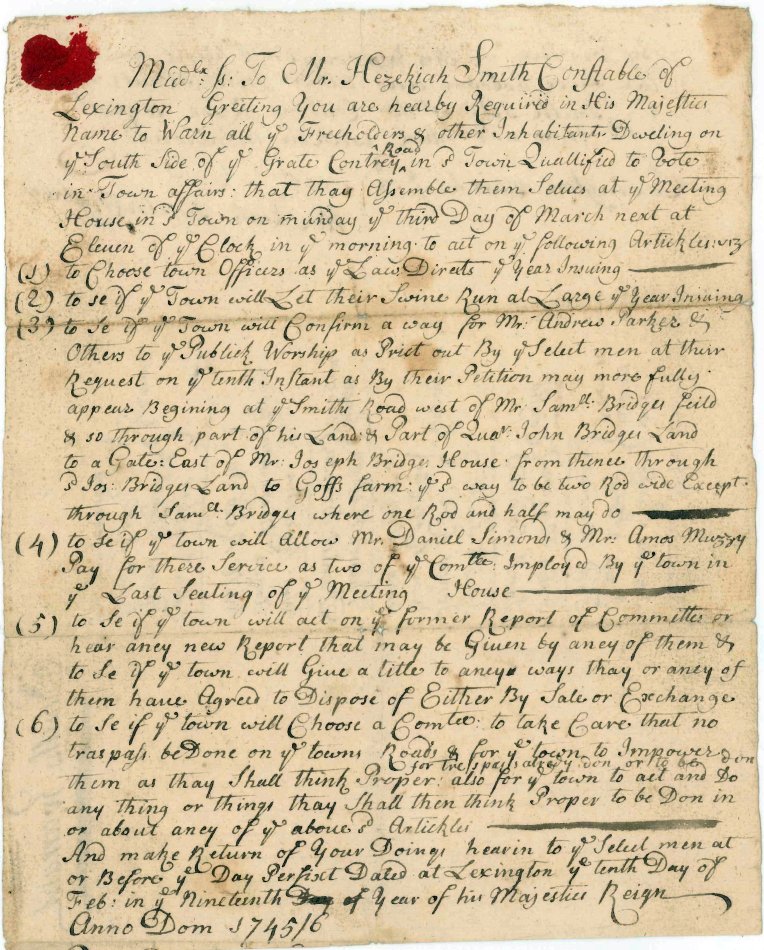 Midd.lx ss: To Mr. Hezekiah Smith Constable of
Lexington Greiting You are hearby Required in His Majestics
Name to Warn all ye Freeholders & other Inhabitants Dweling on
ye South Side of ye Grate Contrey Road in sd Town Quallified to Vote
in Town affairs: that thay Assemble them Selves at ye Meeting
House in sd Town on munday ye third Day of March next at
Eleven of ye Clock in ye morning to act on ye following Artickles: viz
(1) to Choose town Officers as ye Law Direits ye Year Insuing
(2) to se if ye Town will Let their Swine Run at Large ye Year Insuing
(3) to Se if ye Town will Confirm a way for Mr. Andrew Parker &
Others to ye Publick Worship as Prict out By ye Select men at their
Request on ye tenth Instant as By their Petition may more fully
appear Begining at ye Smiths Road west of Mr. Samll: Bridges feild
& so through part of his Land: & Part of Quar: John Bridges Land
to a Gate: East of Mr: Joseph Bridges House: from thence through
sd Jos: Bridges Land to Goffs farm: ye sd way to be two Rod wide Except
through Samll: Bridges where one Rod and half may do
(4) to Se if ye town will Allow Mr. Daniel Simonds & Mr: Amos Muzzy
Pay for there Service as two of ye Comtee: Imployed By ye town in
ye Last Seating of ye Meeting House
(5) to Se if ye town will act on ye former Report of Committes or
hear aney new Report that may be Given by aney of them &
to Se if ye town will Give a title to aney ways thay or aney of
them have Agreed to Dispose of Either By Sale or Exchange
(6) to Se if ye town will Choose a Comtee: to take Care that no
traspass be Done on ye towns Roads & for ye town to Impower
for trespass alredy don or to be don
them as thay Shall think Proper: also for ye town to act and Do
any thing or things thay Shall then think Proper to be Don in
or about aney of ye above sd Artickles
And make Return of Your Doings hearin to ye Select men at
or Before ye Day Perfixt Dated at Lexington ye tenth Day of
Feb: in ye Nineteenth Year of his Majestics Reign
Anno Dom 1745/6